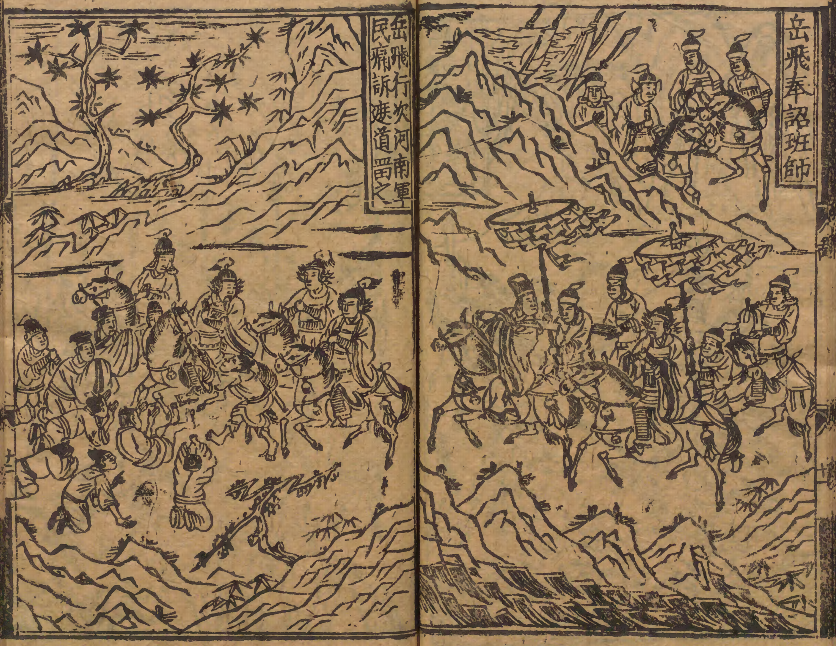 岳飛奉詔班師
岳飛行次河南軍
民痛訴遮道畱之